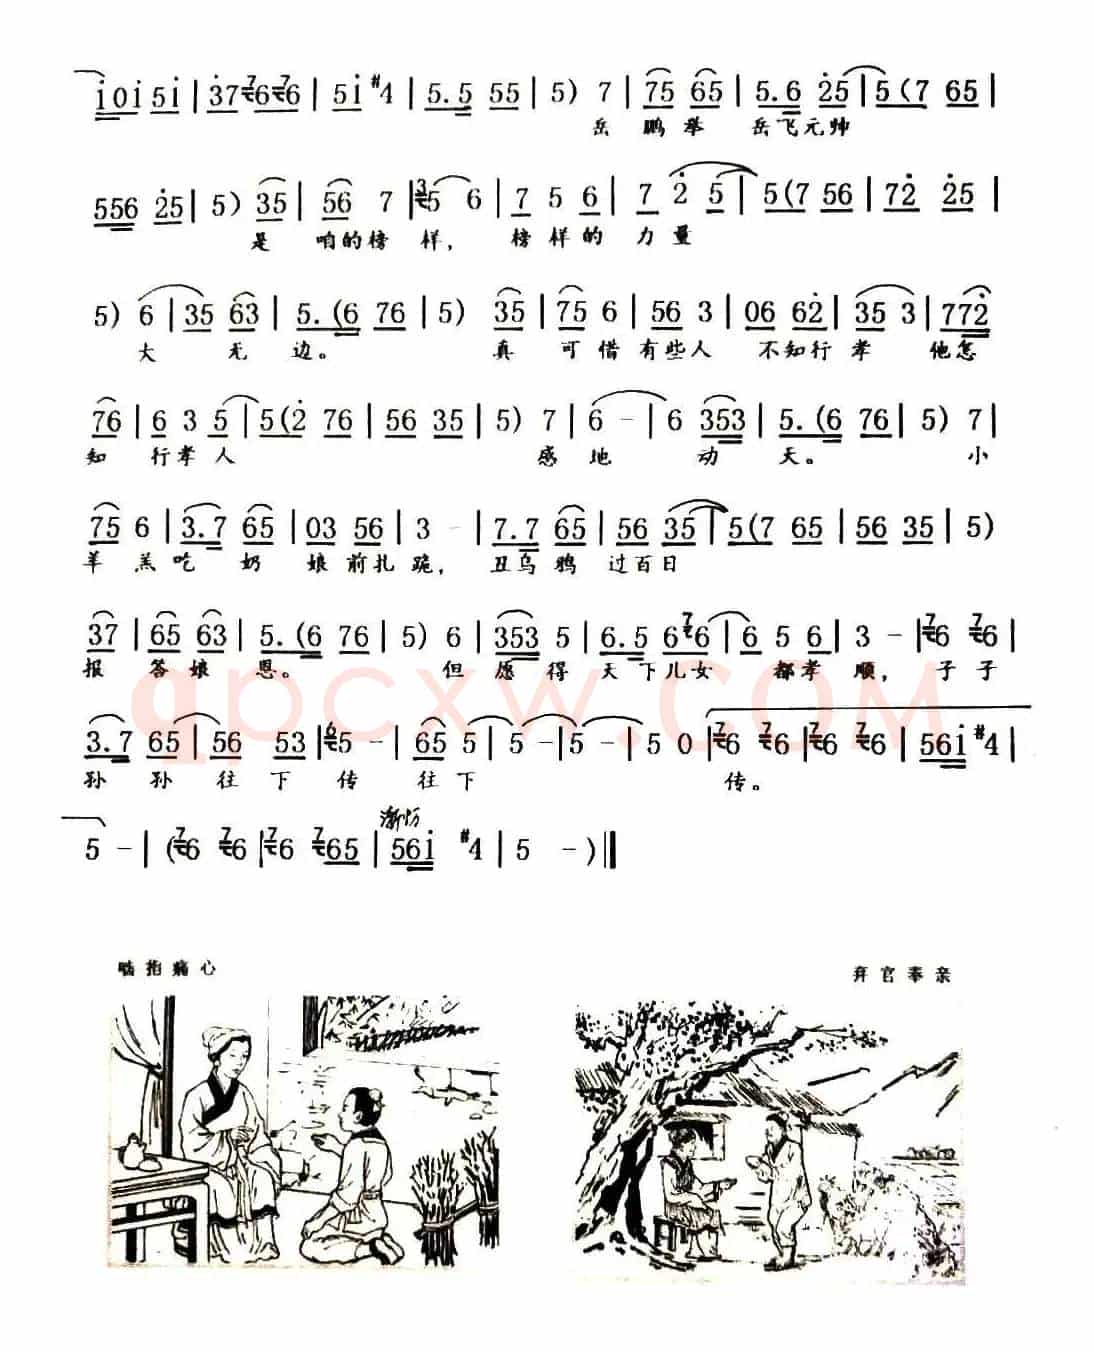 i0i 5i | 37 76 76 | 5i #4 | 5.5 55 | 5) 7 | 75 65 | 5.6 25 | 5(7 65 |
岳 鹏 举 岳飞元帅
556 25 | 5) 35 | 56 7 | 35 6 | 7 5 6 | 7 2 5 | 5(7 56 | 72 25 |
是 咱的榜 样， 榜 样 的 力 量
5) 6 | 35 63 | 5.(6 76 | 5) 35 | 75 6 | 56 3 | 06 62 | 35 3 | 772
大 无 边。 真 可 借 有些人 不知行 孝 他怎
76 | 6 3 5 | 5(2 76 | 56 35 | 5) 7 | 6 - | 6 353 | 5.(6 76 | 5) 7 |
知 行孝人 感 地 动 天。 小
75 6 | 3.7 65 | 03 56 | 3 - | 7.7 65 | 56 35 | 5(7 65 | 56 35 | 5)
羊 羔 吃 奶 娘 前扎 跪， 丑乌 鸦 过百日
37 | 65 63 | 5.(6 76 | 5) 6 | 353 5 | 6.5 6 76 | 6 5 6 | 3 - | 76 76 |
报 答 娘 恩。 但 愿 得 天 下儿 女 都孝 顺， 子 子
3.7 65 | 56 53 | 65 - | 65 5 | 5 - | 5 - | 5 0 | 76 76 | 76 76 | 56i #4 |
孙 孙 往 下 传 往 下 传。
渐慢
5 - | (76 76 | 76 765 | 56i #4 | 5 - )‖
qpcxw.com
啮指痛心
弃官奉亲